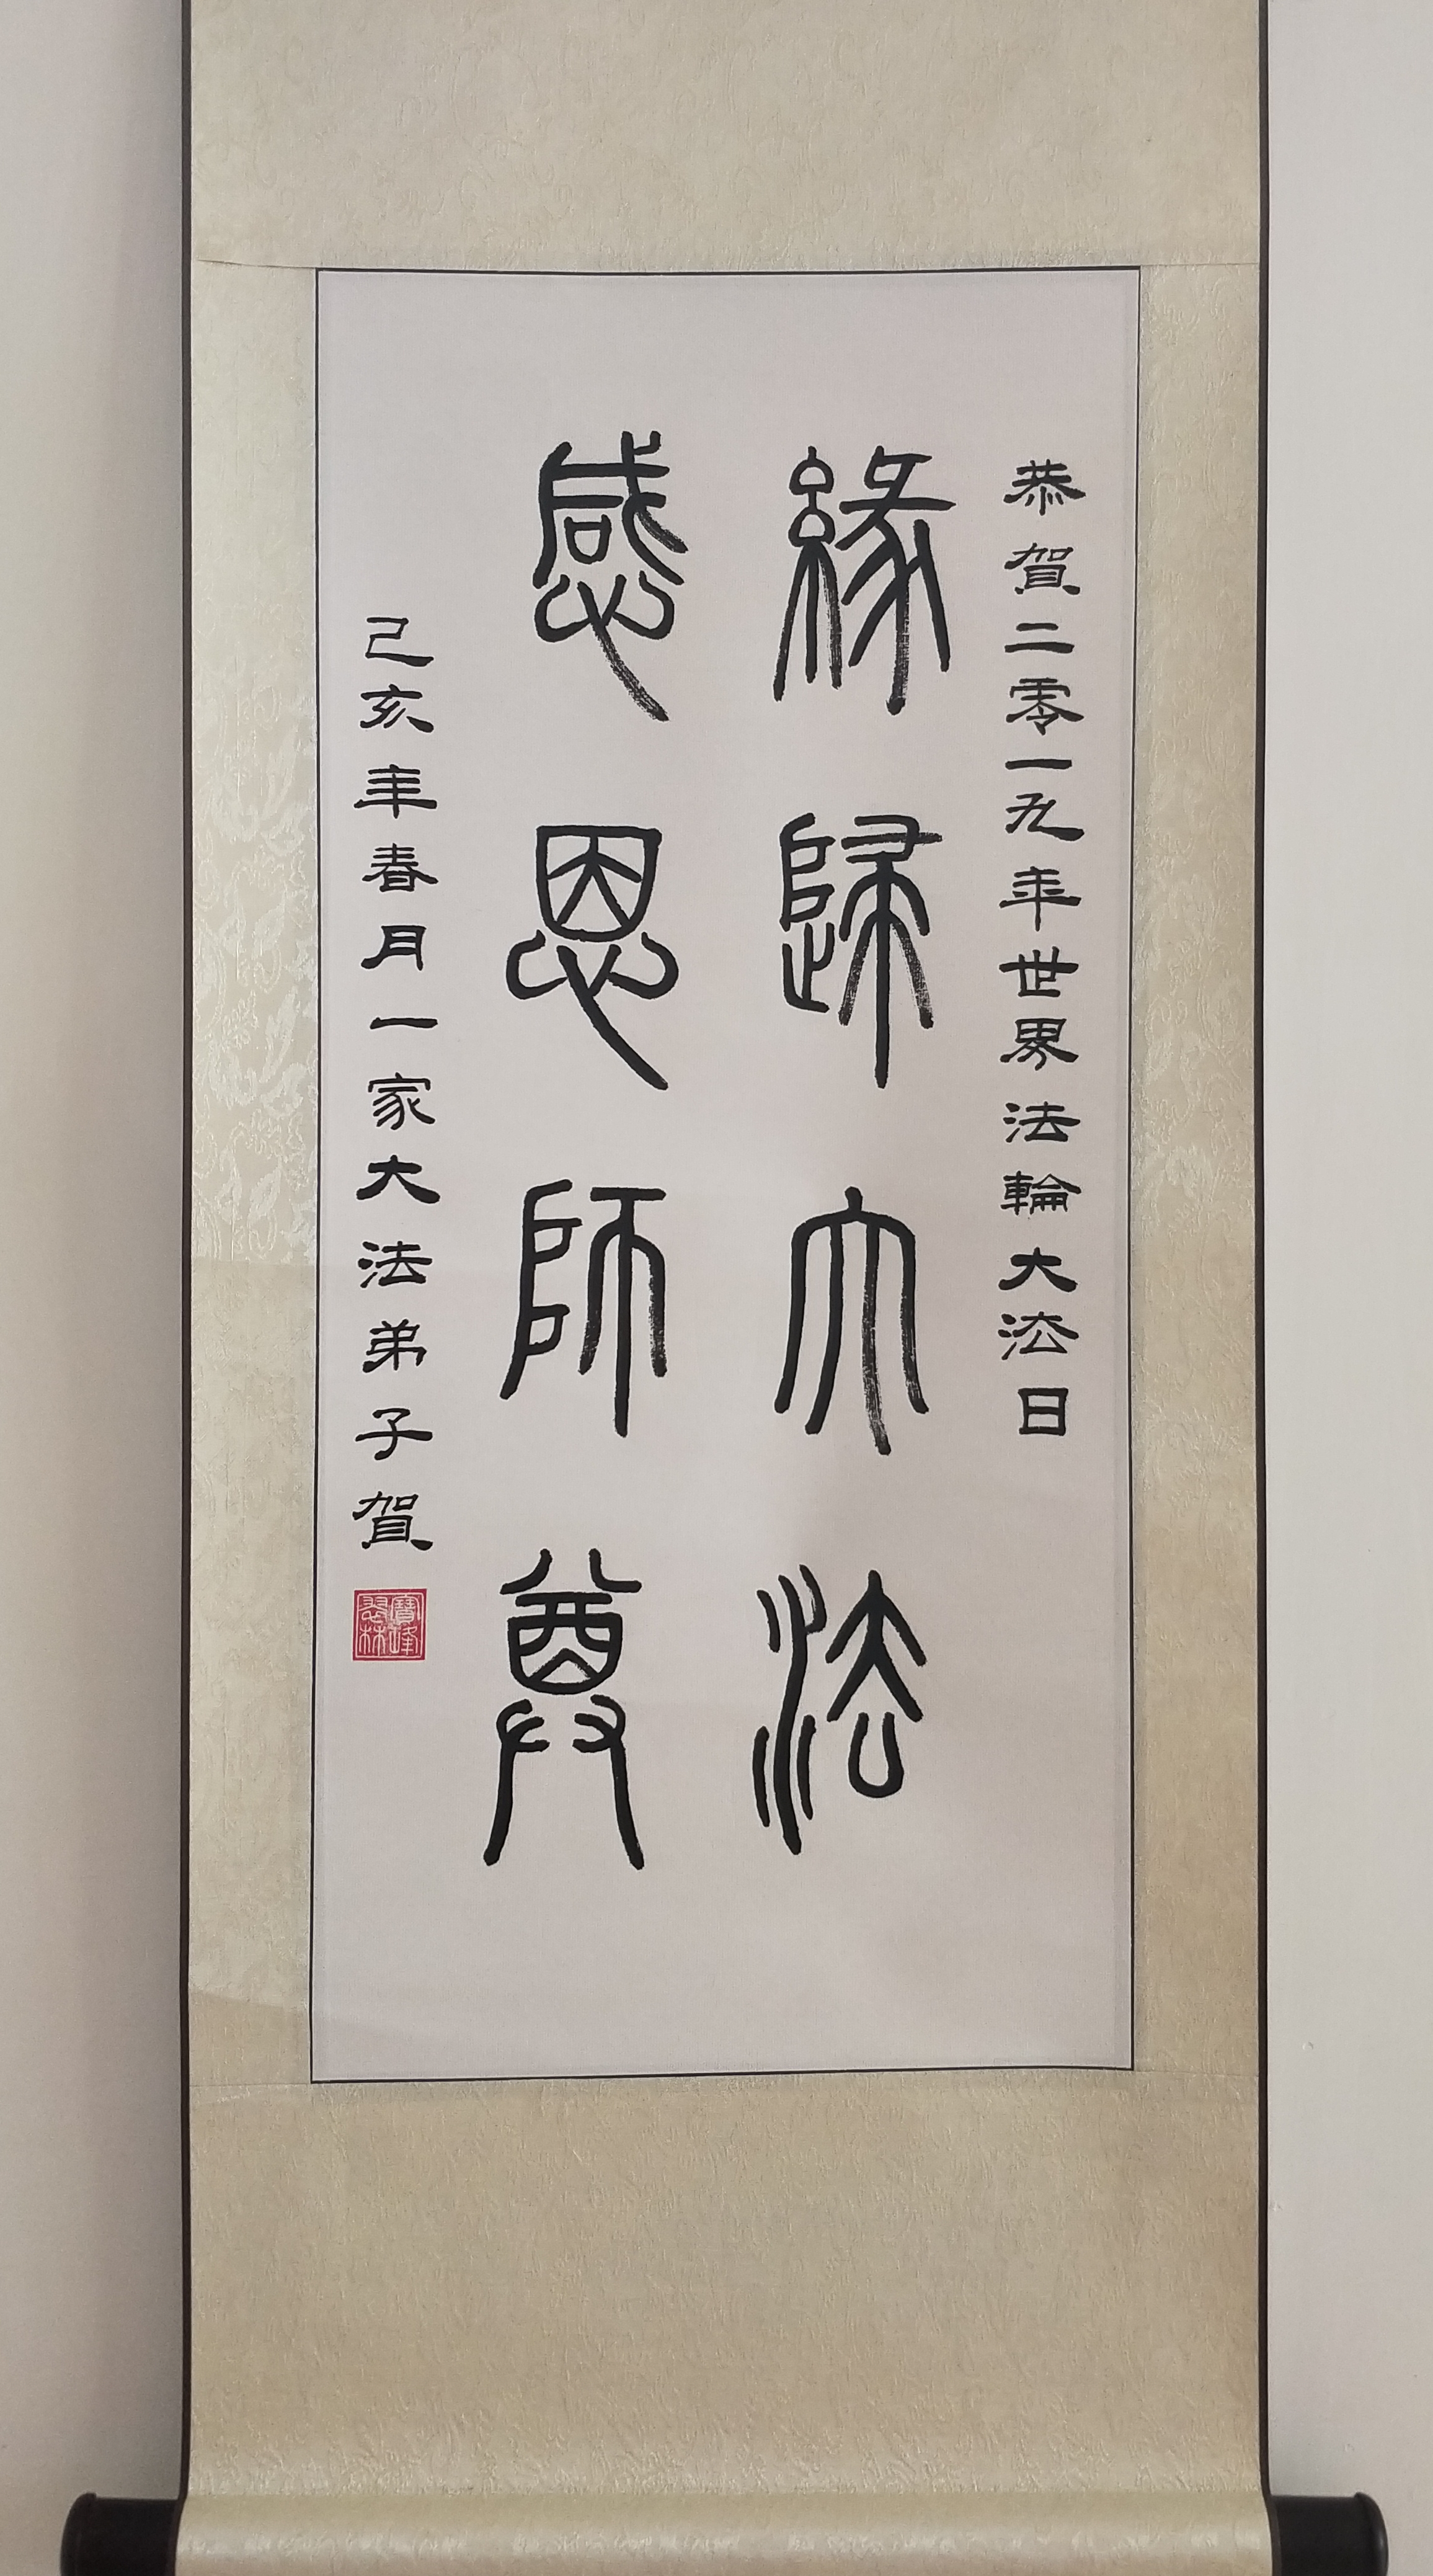 恭賀二零一九年世界法輪大法日
緣歸大法
感恩師尊
己亥年春月一家大法弟子賀